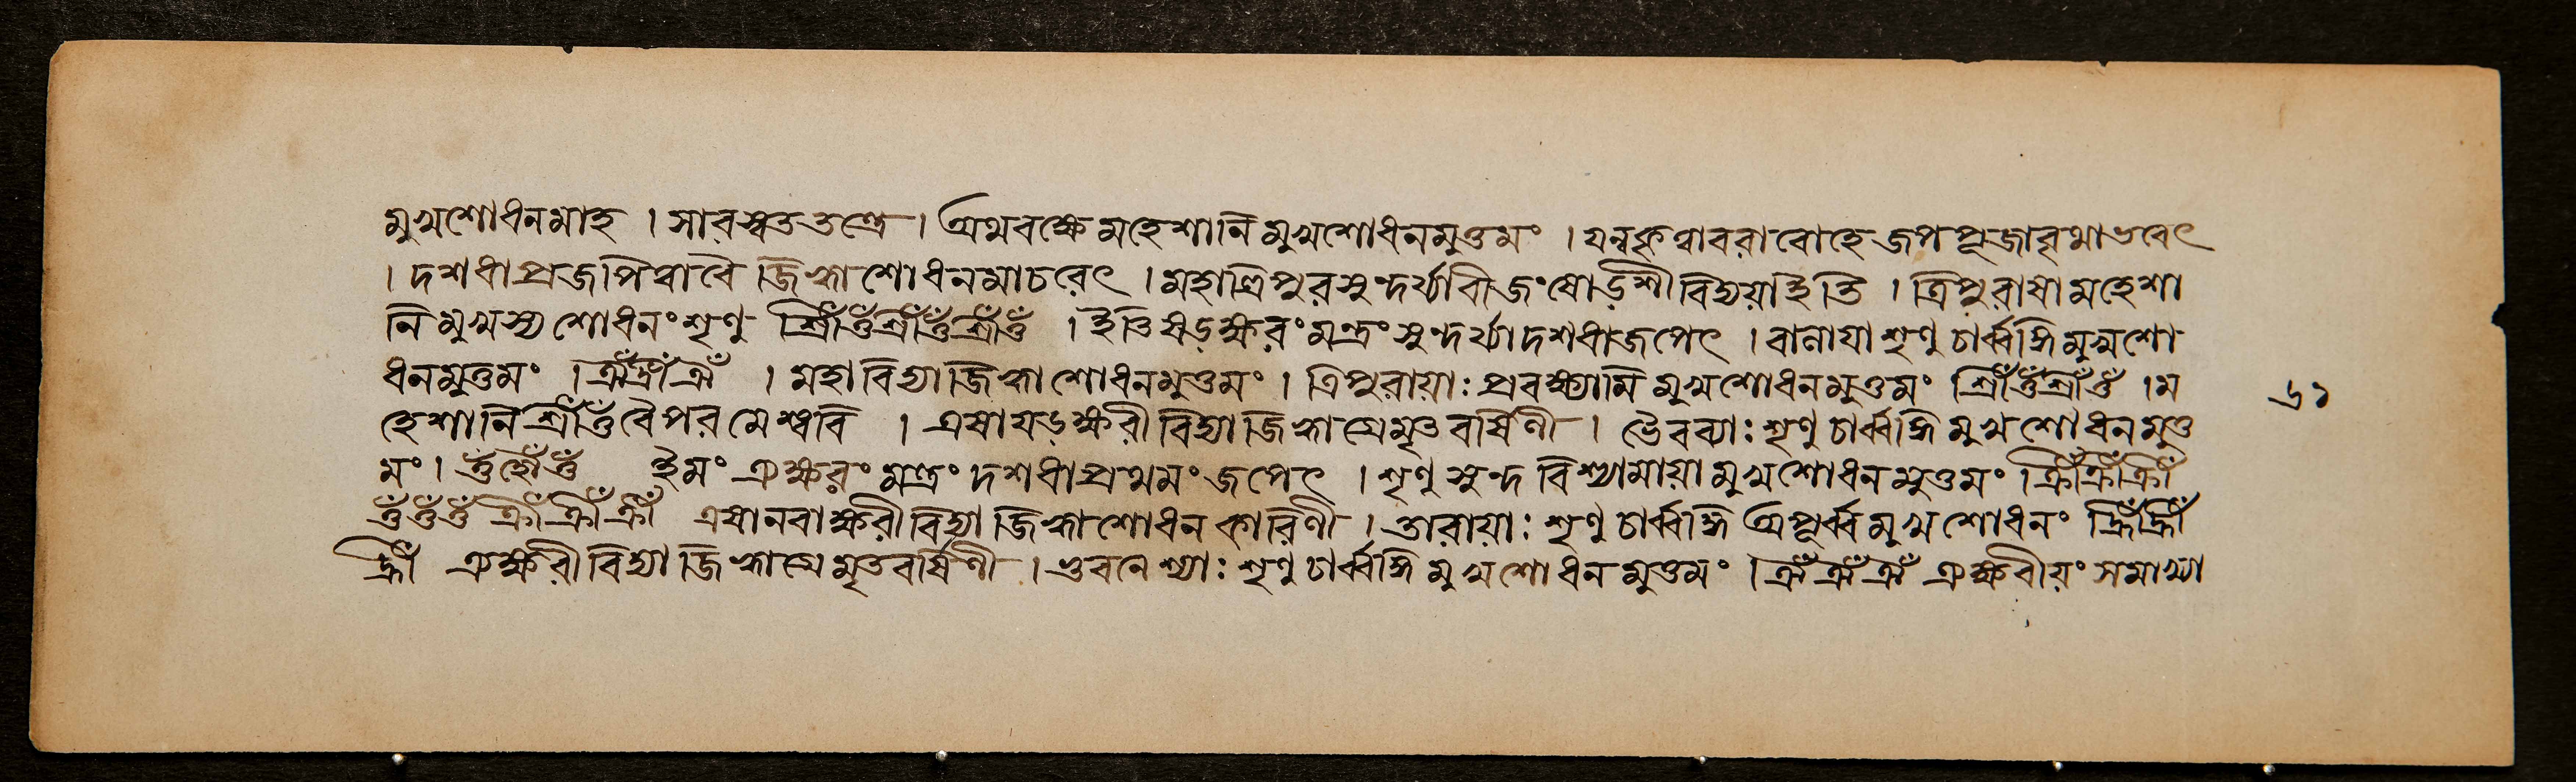 মুখশোধনমাহ । সারস্বততন্ত্রে । অথবক্ষে মহেশানি মুখশোধনমুত্তমং । যন্নকৃত্বাবরারোহে জপপূজাবৃথাভবেৎ
। দশধাপ্রজপিত্বাবৈ জিহ্বাশোধনমাচরেৎ । মহাত্রিপুরসুন্দর্য্যাবীজংষোড়শীবিদ্যয়াইতি । ত্রিপুরাষামহেশা
নি মুখস্যশোধনংশৃণু শ্রীঁওঁশ্রীঁওঁশ্রীঁওঁ । ইতিষড়ক্ষরংমন্ত্রংসুন্দর্য্যাদশধাজপেৎ । বালাযাশৃণু চার্ব্বঙ্গিমুখশো
ধনমুত্তমং । ঐঁ । মহাবিদ্যাজিহ্বাশোধনমুত্তমং । ত্রিপুরায়াঃ প্রবক্ষ্যামি মুখশোধনমুত্তমং শ্রীঁওঁশ্রীঁওঁ । ম
হেশানিশ্রীঁওঁবৈপরমেশ্বরি । এষাষড়ক্ষরীবিদ্যাজিহ্বাগ্রেমৃতবর্ষিণী । ভৈরব্যাঃশৃণুচার্ব্বঙ্গি মুখশোধনমুত্ত
মং । ওঁহৌঁওঁ ইমং ত্র্যক্ষরং মন্ত্রং দশধাপ্রথমং জপেৎ । শৃণুসুন্দ বিশ্যামায়ামুখশোধনমুত্তমং । ক্রীঁক্রীঁক্রীঁ
ওঁওঁওঁক্রীঁক্রীঁক্রীঁ এষানবাক্ষরীবিদ্যাজিহ্বাশোধনকারিণী । তারায়াঃ শৃণুচার্ব্বঙ্গি অপূর্ব্বমুখশোধনং
ত্র্যক্ষরীবিদ্যাজিহ্বাগ্রেমৃতবর্ষিণী । ভুবনেশ্যাঃ শৃণুচার্ব্বঙ্গি মুখশোধনমুত্তমং । ত্র্যক্ষরীয়ং সমাখ্যা
৬১